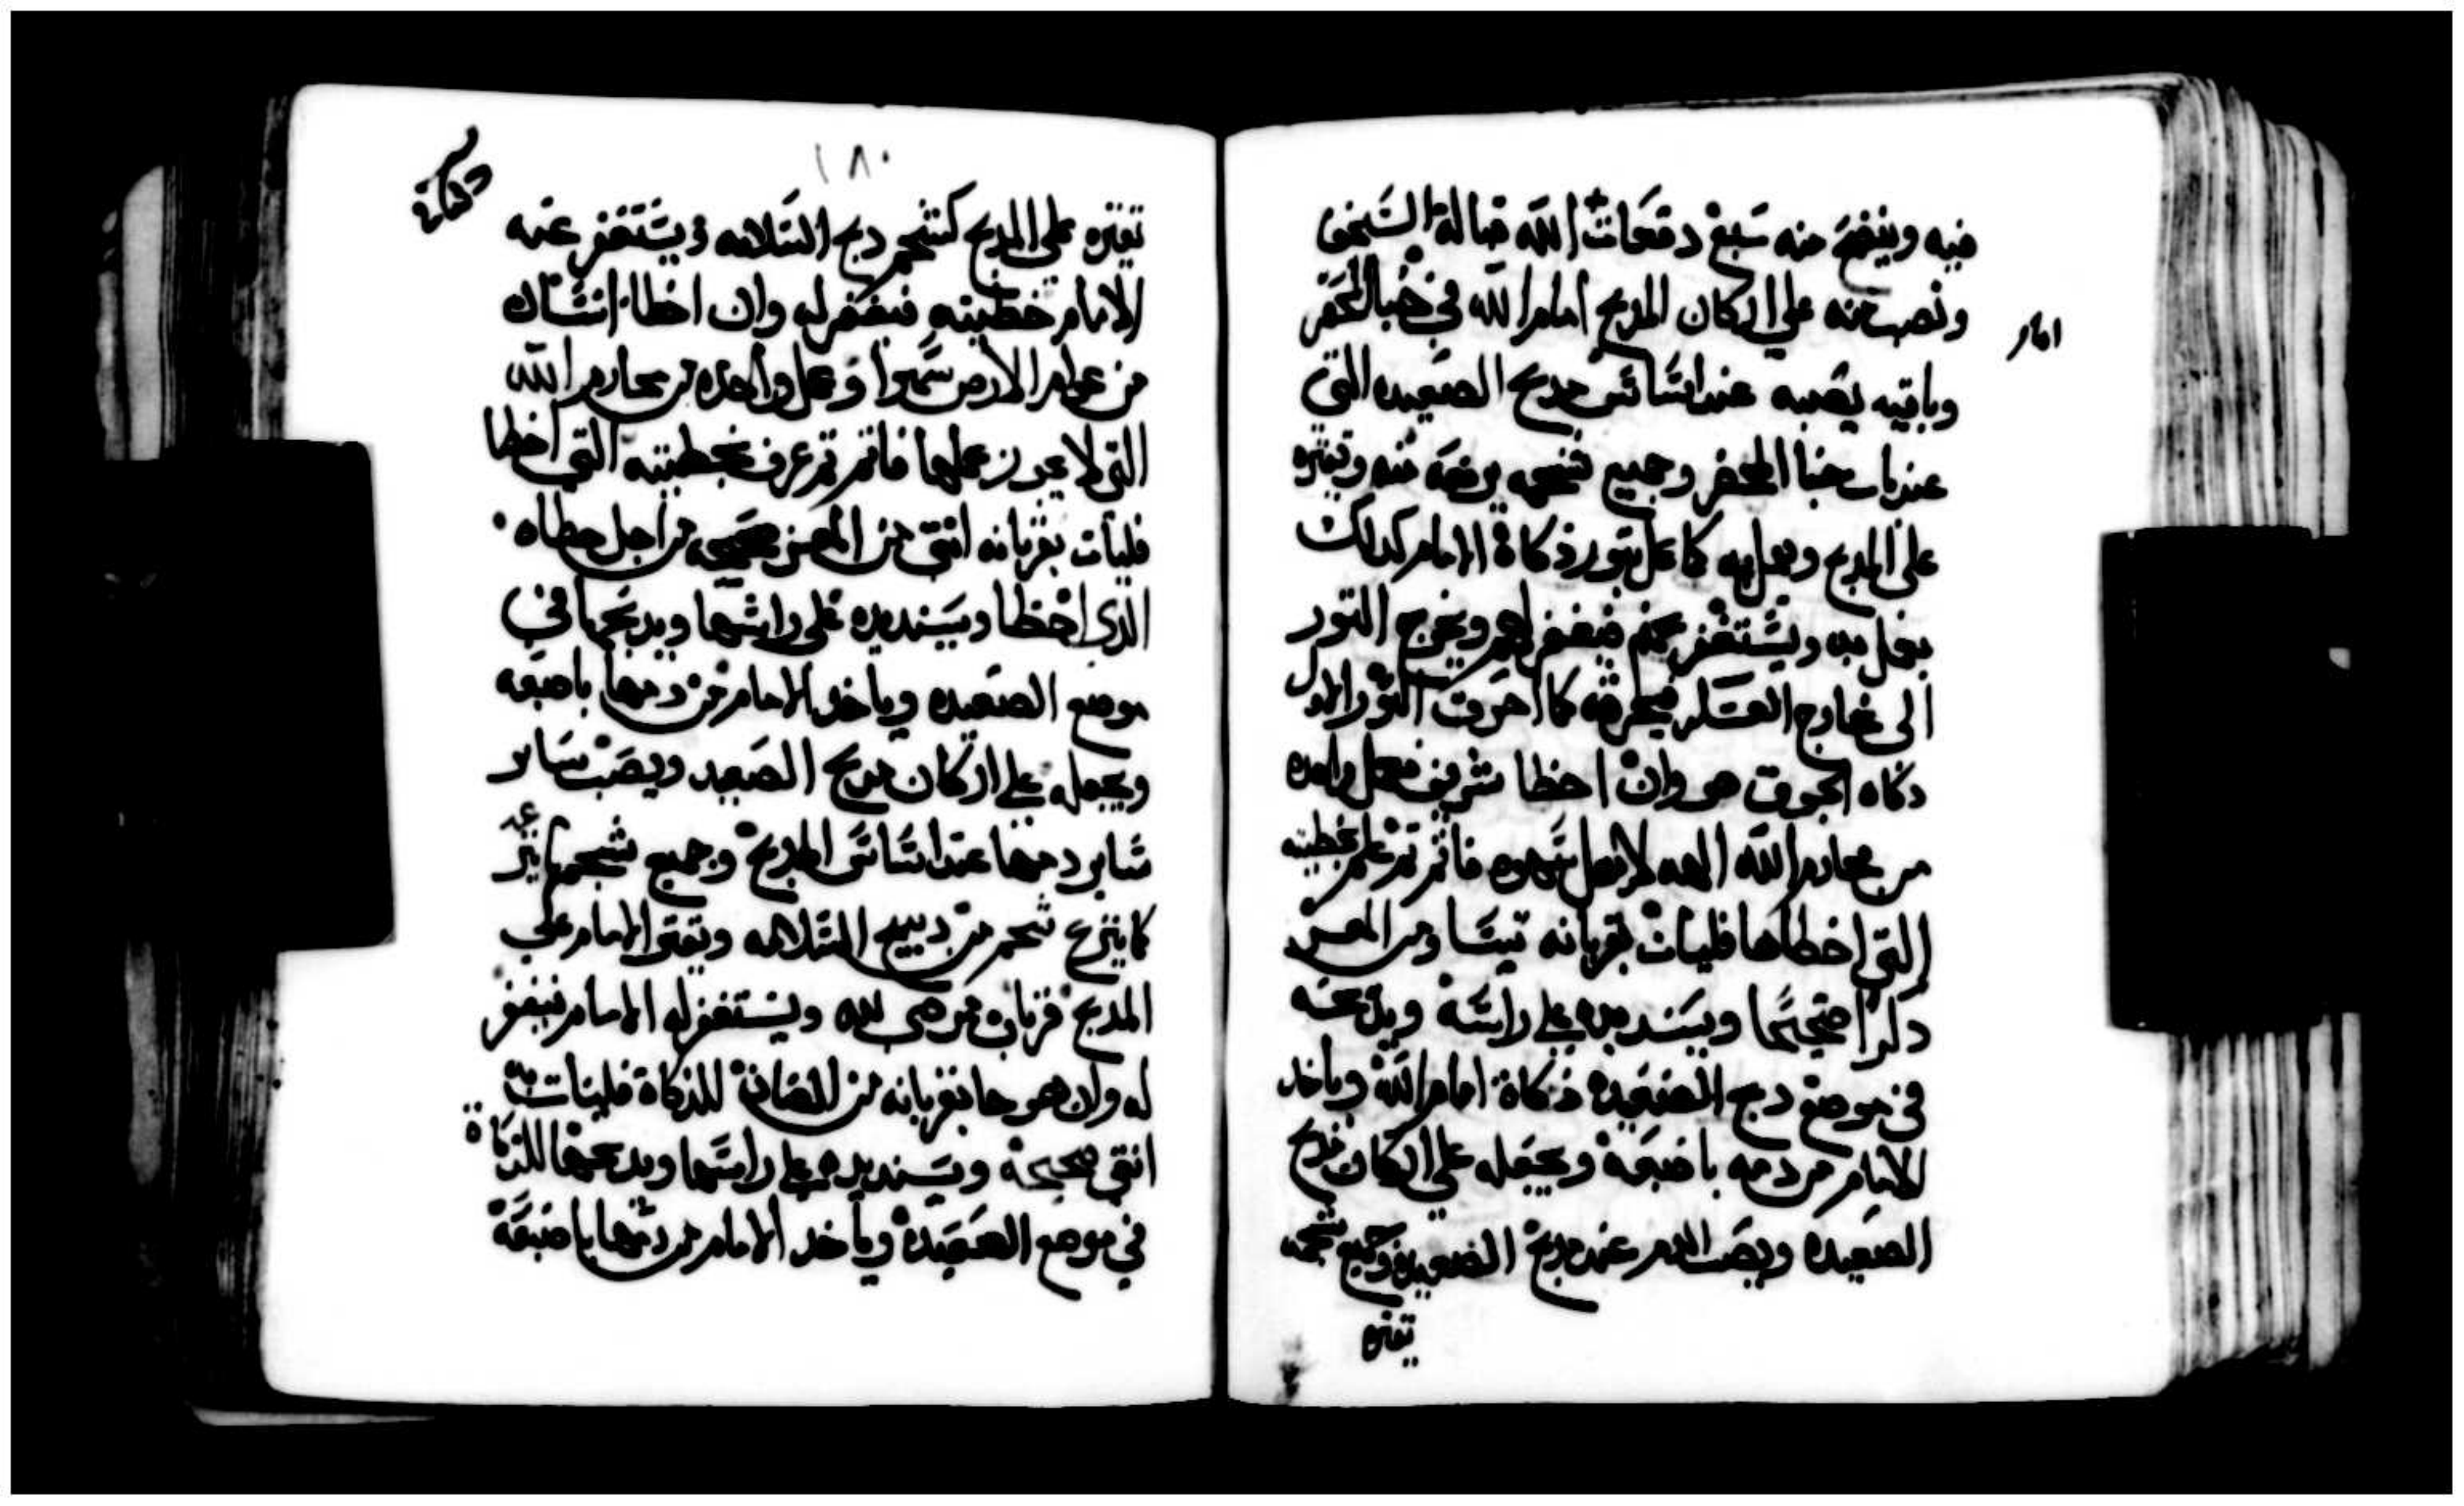 فيه وينضح منه سبع دفعات الله قبالة السجف
ونصب منه علي اركان المدبح امام الله في خبا المحضر
امام
وباقيه يصبه عند اساس مدبح الصعيده التي
عند باب خبا المحضر وجميع شحمه يرفعه منه ويقتره
على المدبح ويعمل به كما عمل بتور ذكاة الامام كدلك
يعمل به ويستغفر عنهم فيغفر لهم ويخرج التور
الى خارج العسكر فيحرقه كما احرقت التور الاول
ذكاه الجوق هو وان اخطا شريف فعمل واحده
من محارم الله الهه لا تعمل بسهوه فاثم ثم علم بخطيته
التي اخطاها فليات بقربانه تيسا من المعز
دكرا صحيحا ويسند يده علي راسه ويدبحه
في موضع دبح الصعيده ذكاة امام الله وياخد
الامام من دمه باصبعه ويجعله علي اركان مدبح
الصعيده ويصب الدم عند مدبح الصعيده وجميع شحمه
يقتره
١٨٠
يقتره علي المدبح كشحم دبح السلامه ويستغفر عنه
الامام خطيته فيغفر له وان اخطا انسان
من عوام الارض سهوا وعمل واحده من محارم الله
التي لا يجوز عملها فاثم ثم عرف بخطيته التي اخطا
فليات بقربانه انثى من المعز صحيحه من اجل خطاه
الدي اخطا ويسند يده على راسها ويدبحها في
موضع الصعيده وياخد الامام من دمها باصبعه
ويجعله علي اركان مدبح الصعيد ويصب ساير
ساير دمها عند اساس المدبح وجميع شحمها ينزع
كما ينزع شحم من دبيح السلامه ويقتر الامام علي
المدبح قربان مرضي لله ويستغفر له الامام فيغفر
له وان هو جا بقربانه من الضان للذكاة فليات به
انثى صحيحة ويسند يده علي راسها ويدبحها للذكاة
في موضع الصعيدة وياخد الامام من دمها باصبعه